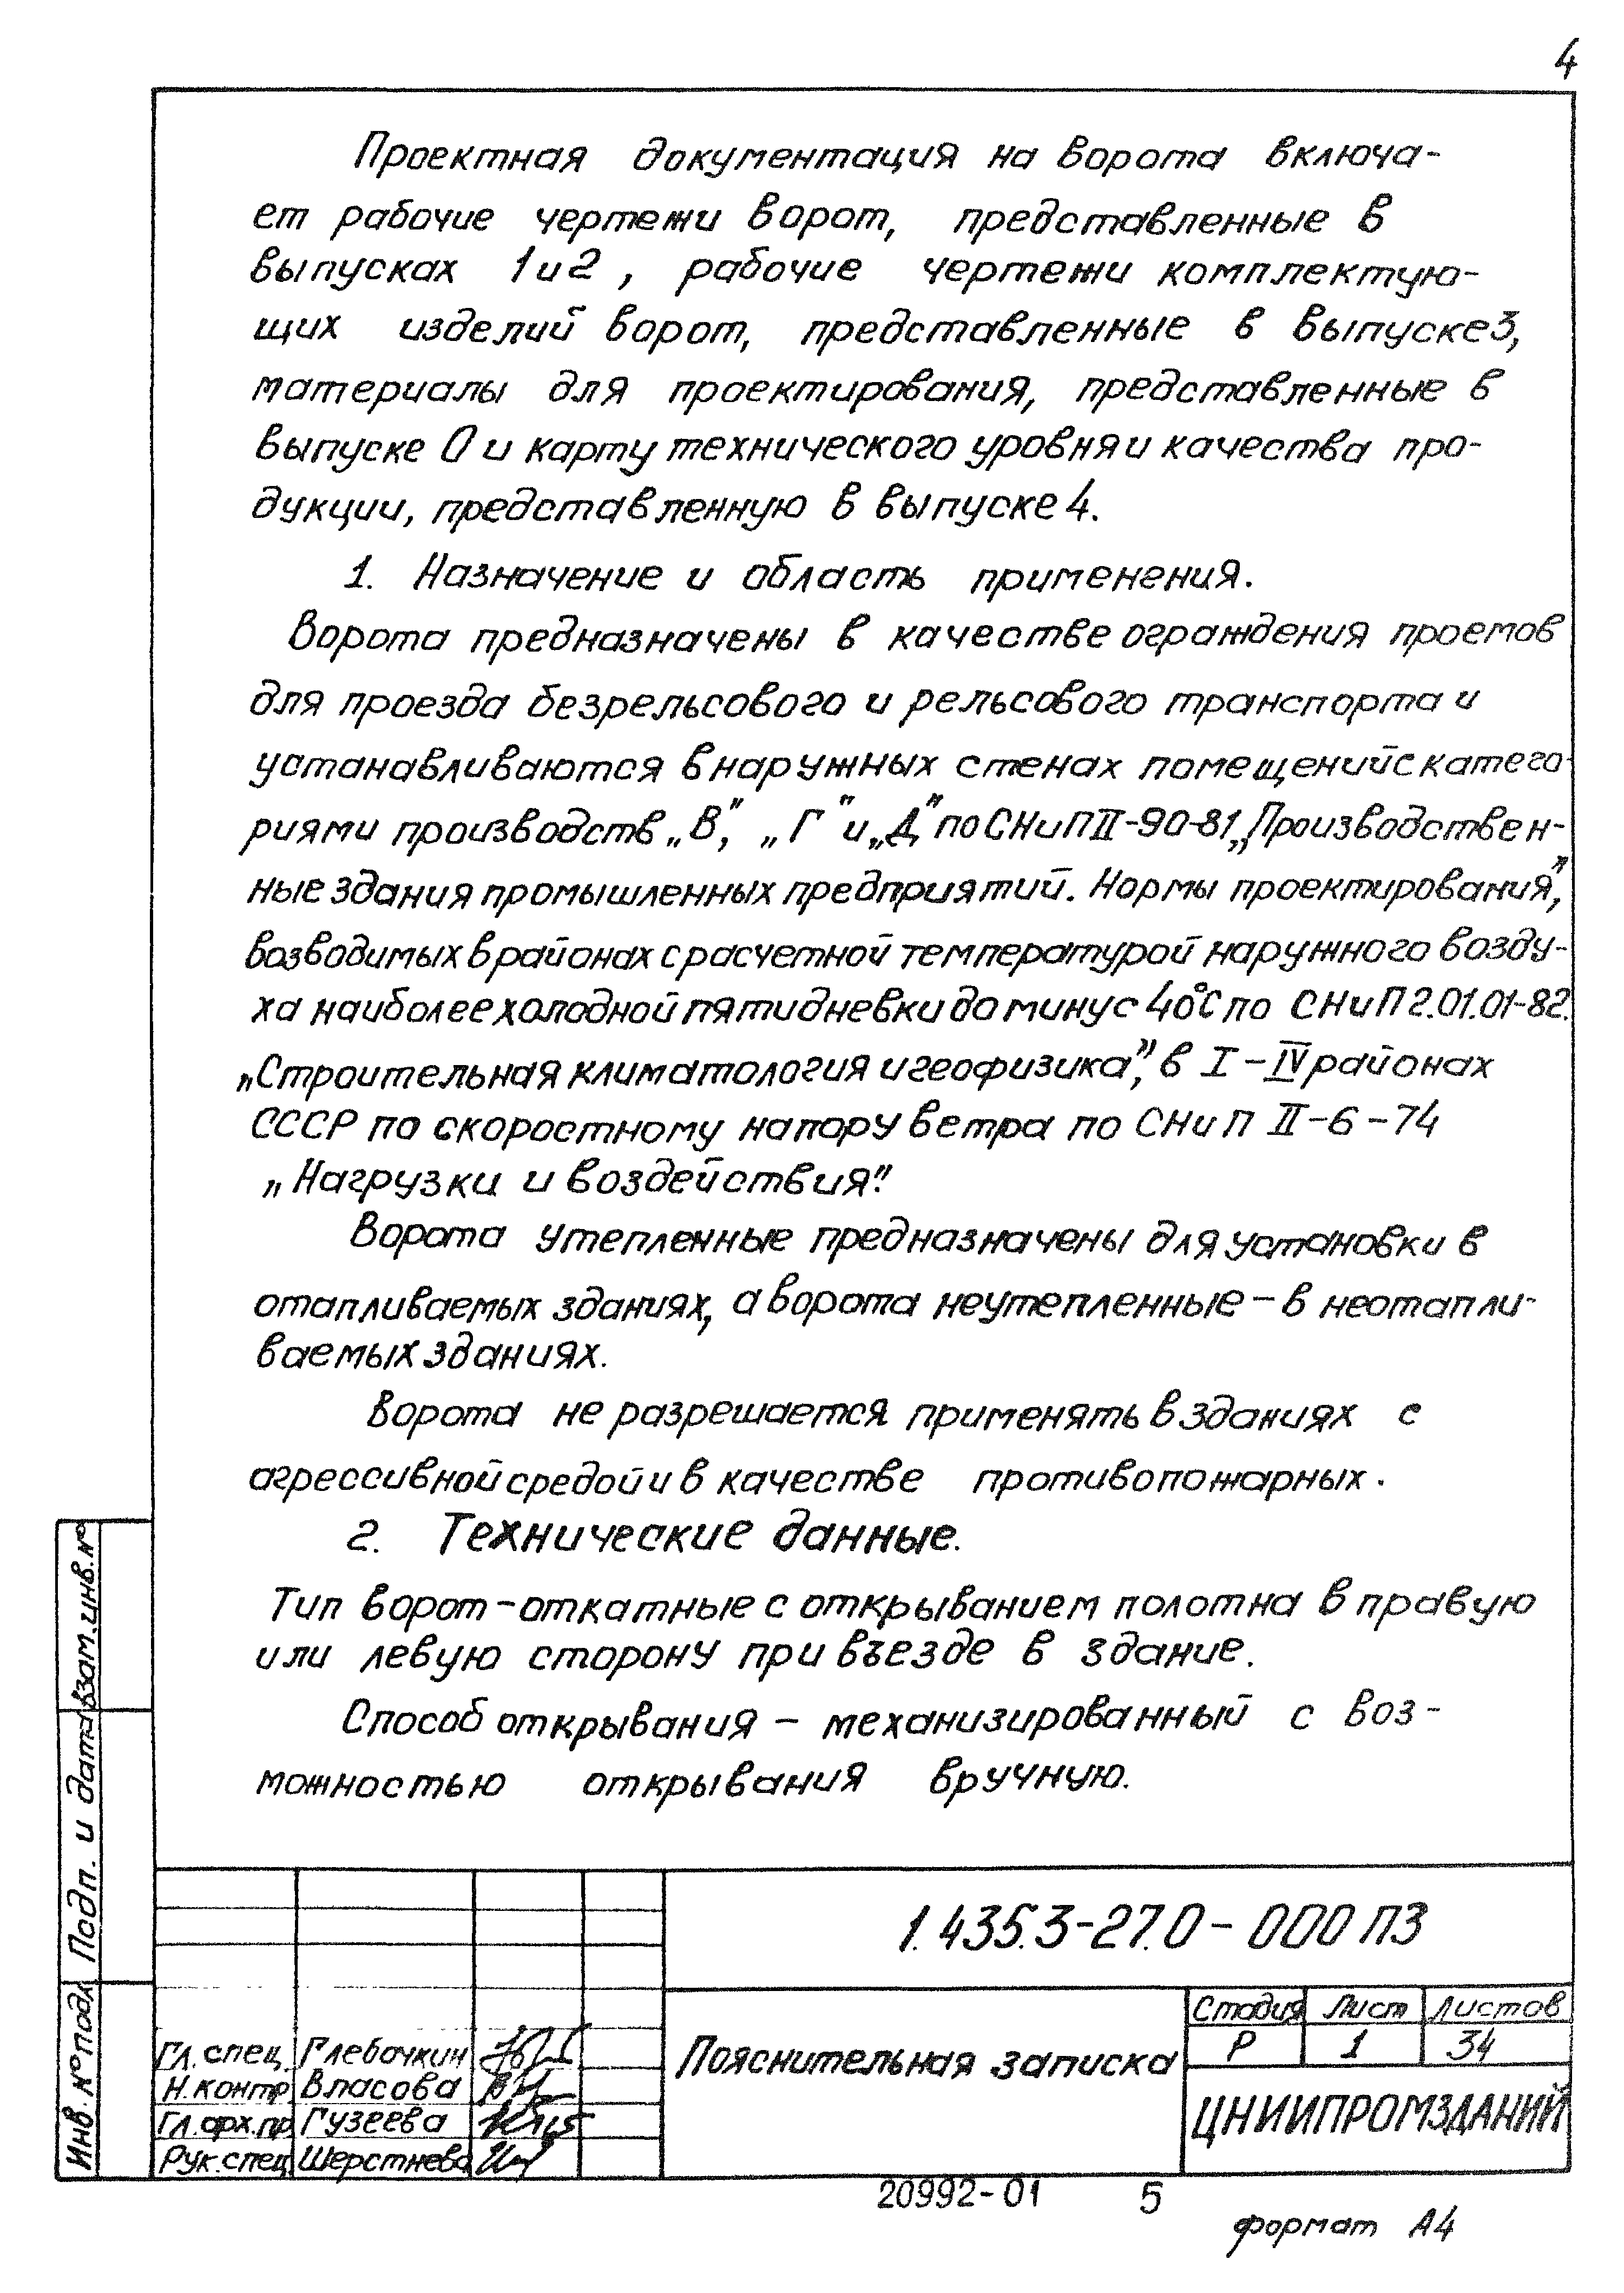 4
Проектная документация на ворота включа-
ет рабочие чертежи ворот, представленные в
выпусках 1 и 2, рабочие чертежи комплектую-
щих изделий ворот, представленные в выпуске 3,
материалы для проектирования, представленные в
выпуске 0 и карту технического уровня и качества про-
дукции, представленную в выпуске 4.
1. Назначение и область применения.
Ворота предназначены в качестве ограждения проемов
для проезда безрельсового и рельсового транспорта и
устанавливаются в наружных стенах помещений с катего-
риями производств „В", „Г" и „Д" по СНиП II-90-81 „Производствен-
ные здания промышленных предприятий. Нормы проектирования",
возводимых в районах с расчетной температурой наружного возду-
ха наиболее холодной пятидневки до минус 40°С по СНиП 2.01.01-82.
„Строительная климатология и геофизика", в I - IV районах
СССР по скоростному напору ветра по СНиП II-6-74
„Нагрузки и воздействия".
Ворота утепленные предназначены для установки в
отапливаемых зданиях, а ворота неутепленные - в неотапли-
ваемых зданиях.
Ворота не разрешается применять в зданиях с
агрессивной средой и в качестве противопожарных.
2. Технические данные.
Тип ворот - откатные с открыванием полотна в правую
или левую сторону при въезде в здание.
Способ открывания - механизированный с воз-
можностью открывания вручную.
Взам. инв. №
Подп. и дата
Инв. № подл
1.435.3-27.0-000 ПЗ
Гл. спец. Глебочкин
Н. контр Власова
Гл. арх. пр Гузеева
Рук. спец Шерстнева
Пояснительная записка
Стадия Лист Листов
Р 1 34
ЦНИИПРОМЗДАНИЙ
20992-01 5
формат А4